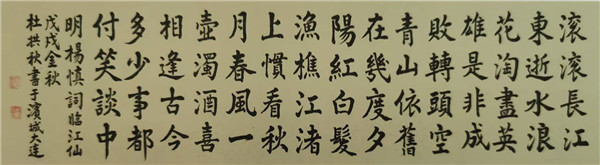 滾滾長江
東逝水浪
花淘盡英
雄是非成
敗轉頭空
青山依舊
在幾度夕
陽紅白髮
漁樵江渚
上慣看秋
月春風一
壺濁酒喜
相逢古今
多少事都
付笑談中
明楊慎詞臨江仙
戊戌金秋
杜拱秋書于濱城大連